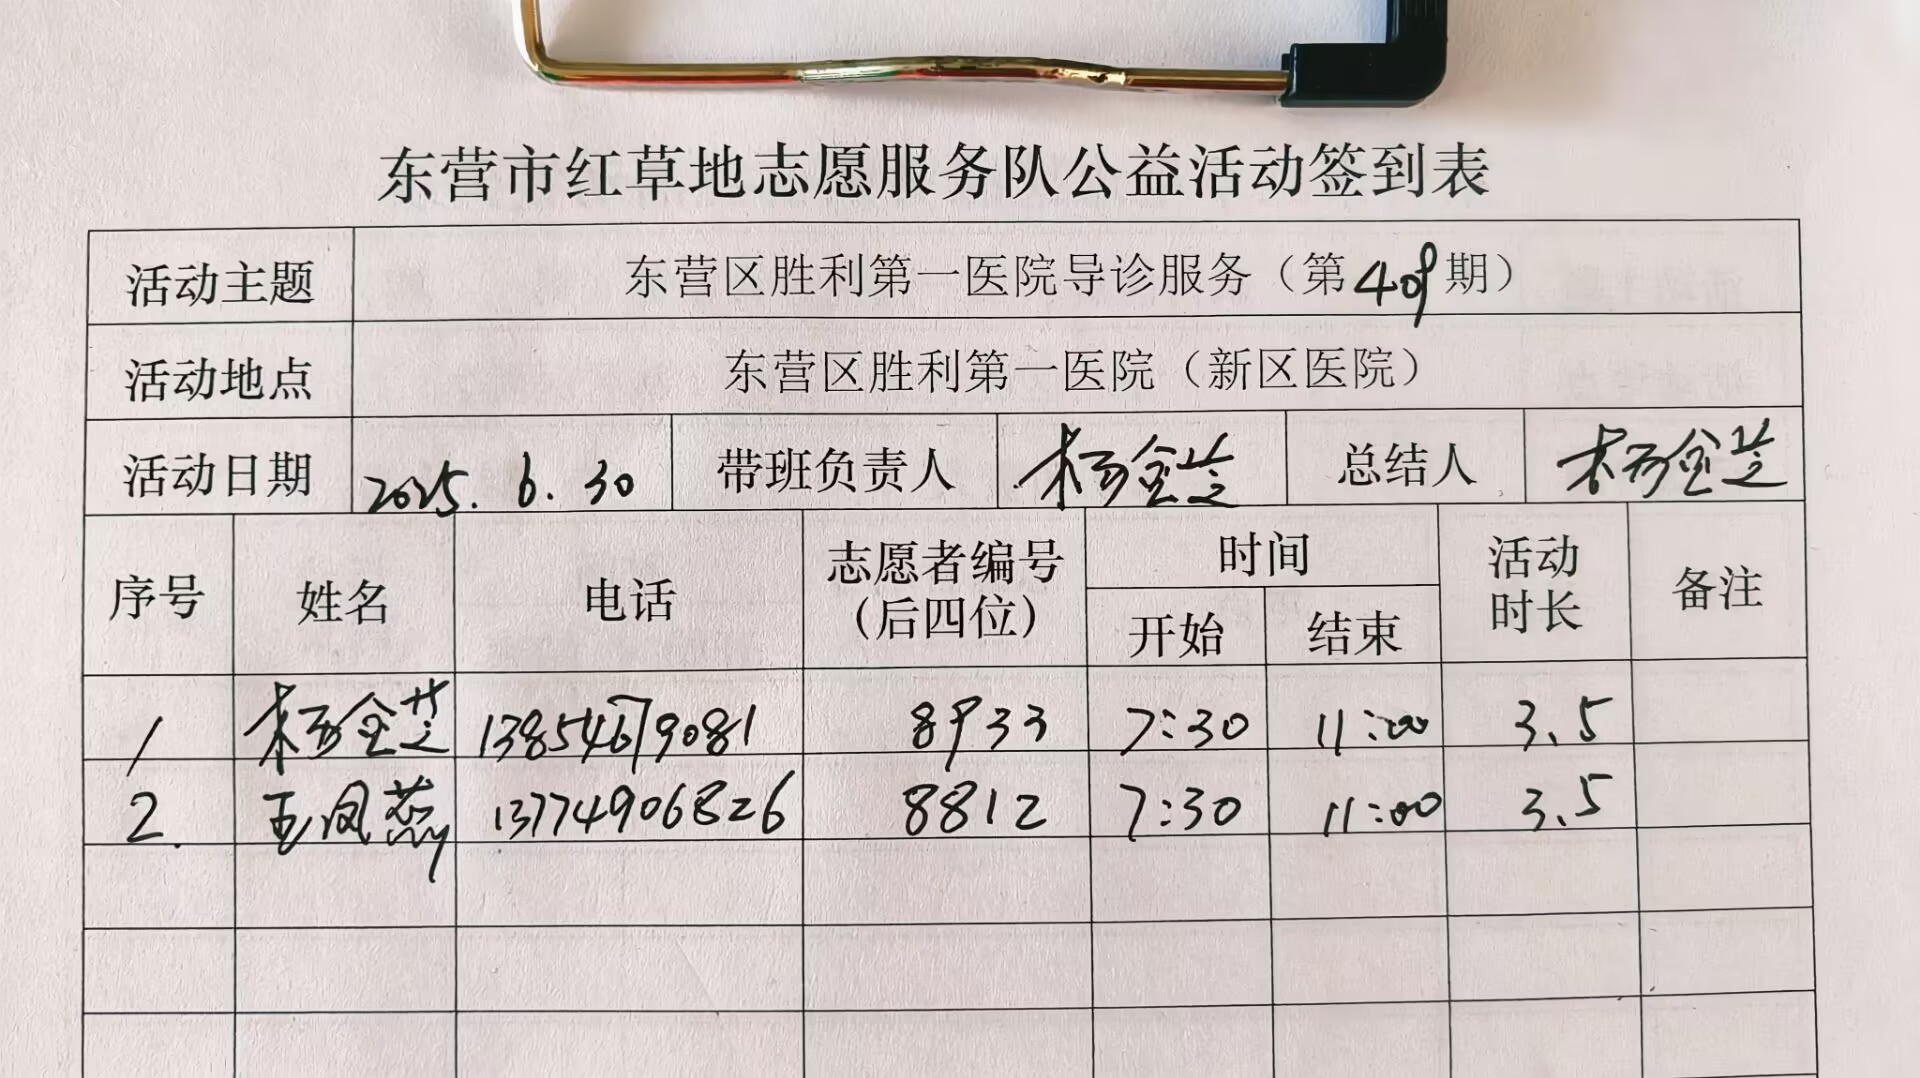 东营市红草地志愿服务队公益活动签到表
活动主题 东营区胜利第一医院导诊服务（第409期）
活动地点 东营区胜利第一医院（新区医院）
活动日期 2025.6.30 带班负责人 杨金芝 总结人 杨金芝
序号 姓名 电话 志愿者编号（后四位） 时间 开始 结束 活动时长 备注
1 杨金芝 13854679081 8933 7:30 11:00 3.5
2. 王凤燕 13774906826 8812 7:30 11:00 3.5